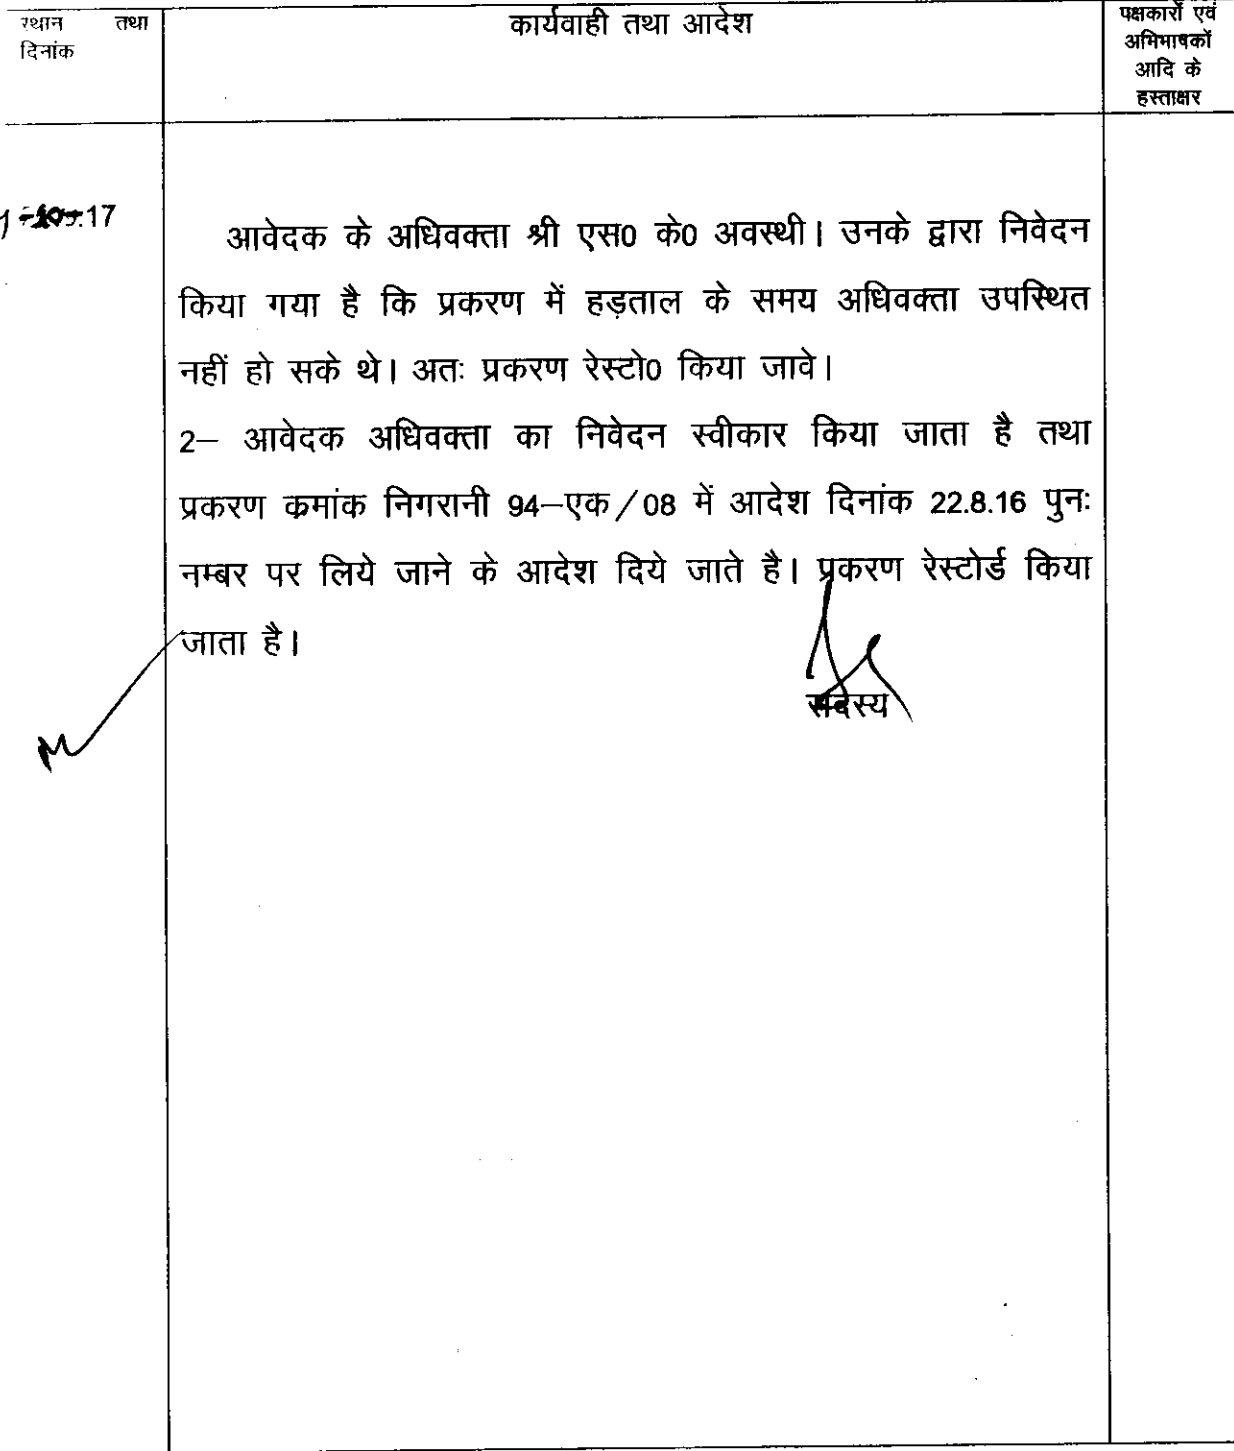 स्थान तथा
दिनांक
कार्यवाही तथा आदेश
पक्षकारों एवं
अभिभाषकों
आदि के
हस्ताक्षर
.17
आवेदक के अधिवक्ता श्री एस0 के0 अवस्थी। उनके द्वारा निवेदन
किया गया है कि प्रकरण में हड़ताल के समय अधिवक्ता उपस्थित
नहीं हो सके थे। अतः प्रकरण रेस्टो0 किया जावे।
2– आवेदक अधिवक्ता का निवेदन स्वीकार किया जाता है तथा
प्रकरण कमांक निगरानी 94–एक/08 में आदेश दिनांक 22.8.16 पुनः
नम्बर पर लिये जाने के आदेश दिये जाते है। प्रकरण रेस्टोर्ड किया
जाता है।
सदस्य